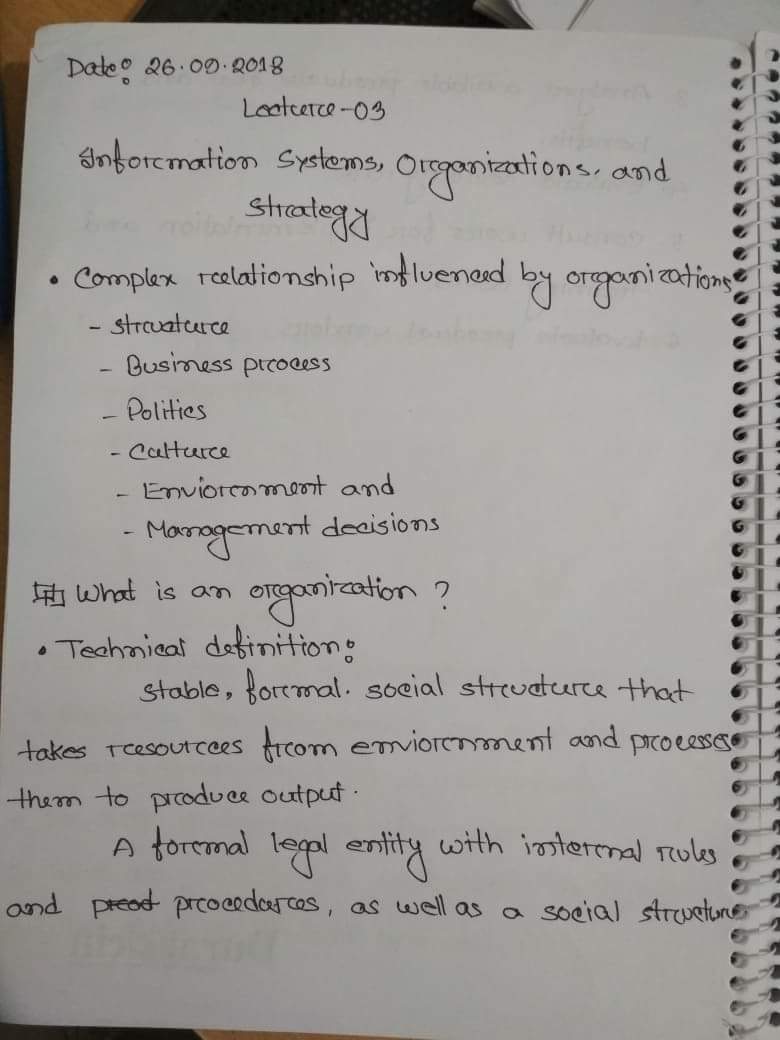 Date: 26.09.2018
Lecture-03
Information Systems, Organizations, and
Strategy
• Complex relationship influenced by organizations
- structure
- Business process
- Politics
- Culture
- Enviornment and
- Management decisions
What is an organization ?
• Technical definition:
stable, formal. social structure that
takes resources from enviornment and processes
them to produce output.
A formal legal entity with internal rules
and procedures, as well as a social structure